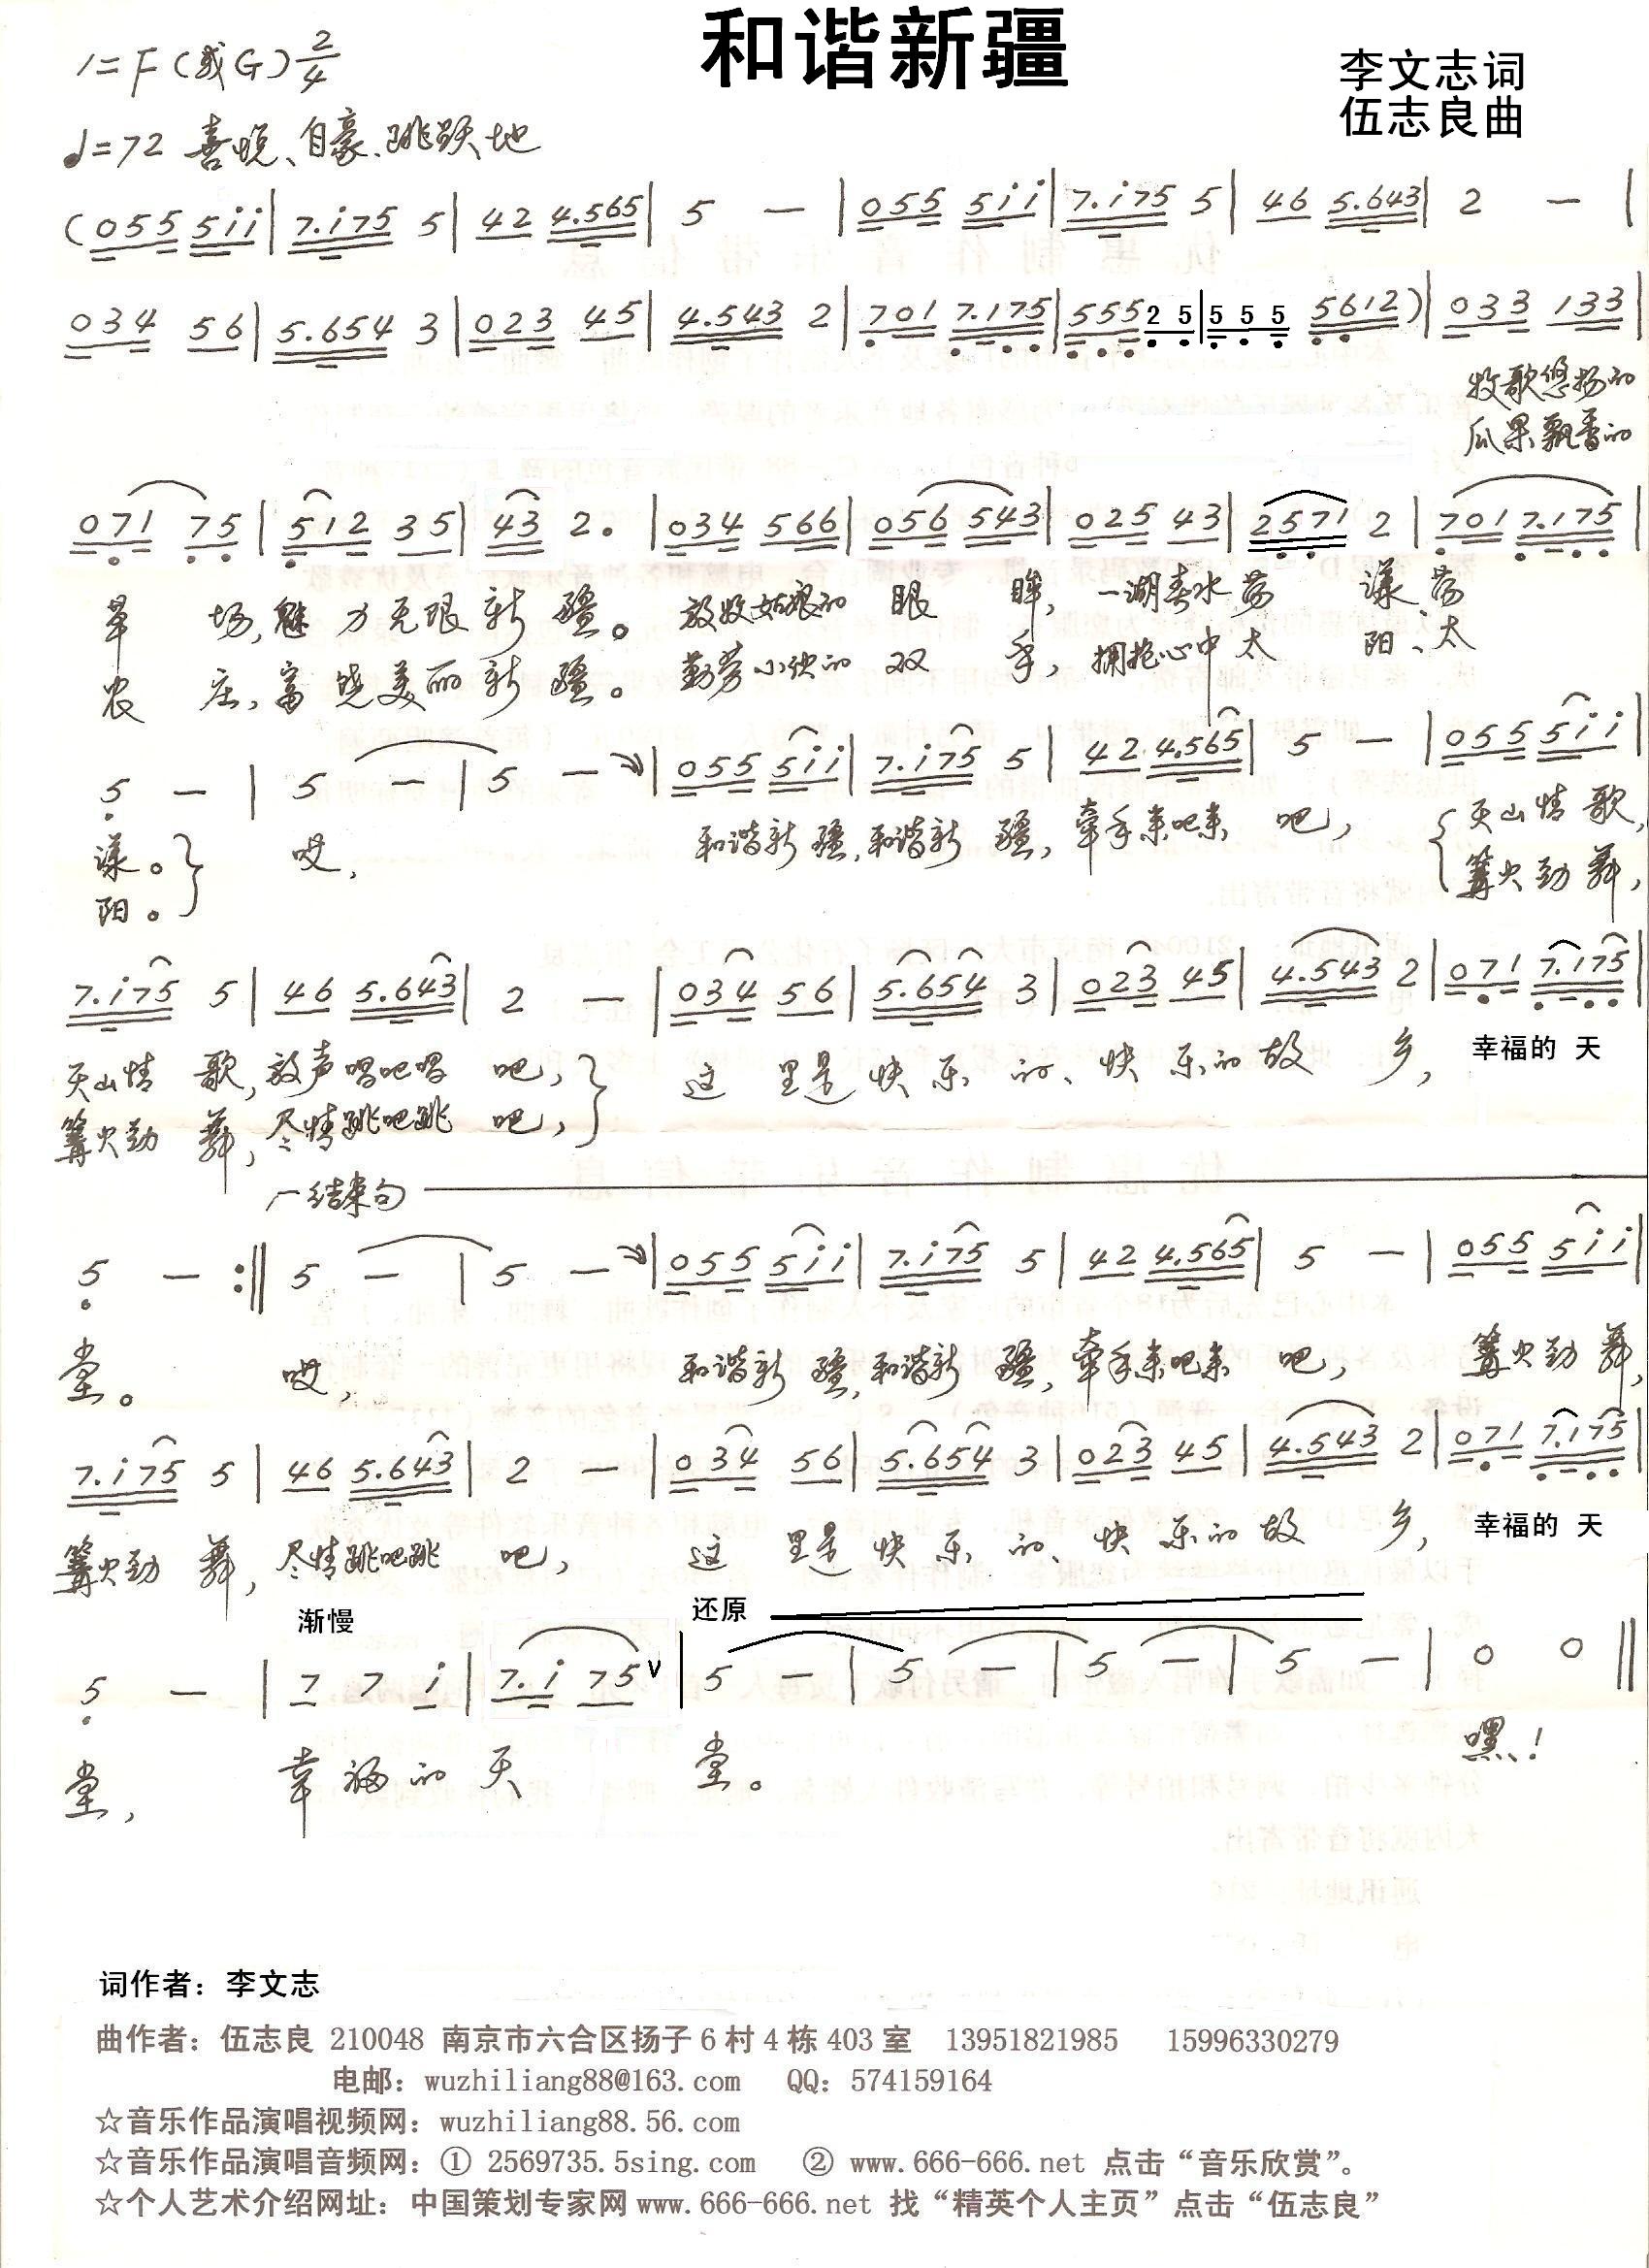 和谐新疆
1=F(或G) 2/4
李文志词
伍志良曲
♩=72 喜悦、自豪、跳跃地
(055 5ii | 7.i75 5 | 42 4.565 | 5 — | 055 5ii | 7.i75 5 | 46 5.643 | 2 — |
034 56 | 5.654 3 | 023 45 | 4.543 2 | 701 7.175 | 555 2 5 | 5 5 5 5612) | 033 133 |
牧歌悠扬的
瓜果飘香的
071 75 | 512 35 | 43 2. | 034 566 | 056 543 | 025 43 | 2571 2 | 701 7.175 |
草 场,魅 力 无限 新 疆。 放牧姑娘的 眼 眸, 一湖春水 荡 漾、荡
农 庄,富 饶 美丽 新 疆。 勤劳小伙的 双 手, 拥抱心中 太 阳、太
5 — | 5 — | 5 — | 055 5ii | 7.i75 5 | 42 4.565 | 5 — | 055 5ii |
漾。} 哎, 和谐新 疆,和谐新 疆,牵手来吧来 吧, { 天山情 歌,
阳。 篝火劲 舞,
7.i75 5 | 46 5.643 | 2 — | 034 56 | 5.654 3 | 023 45 | 4.543 2 | 071 7.175 |
天山情 歌,放声唱吧唱 吧,} 这 里是 快 乐 的、快 乐的 故 乡, 幸福的 天
篝火劲 舞,尽情跳吧跳 吧,
结束句
5 — :‖ 5 — | 5 — | 055 5ii | 7.i75 5 | 42 4.565 | 5 — | 055 5ii |
堂。 哎, 和谐新 疆,和谐新 疆,牵手来吧来 吧, 篝火劲 舞,
7.i75 5 | 46 5.643 | 2 — | 034 56 | 5.654 3 | 023 45 | 4.543 2 | 071 7.175 |
篝火劲 舞,尽情跳吧跳 吧, 这 里是 快 乐 的、快 乐的 故 乡, 幸福的 天
渐慢 还原
5 — | 7 7 i | 7.i 75 V | 5 — | 5 — | 5 — | 5 — | 0 0 ‖
堂, 幸 福 的 天 堂。 嘿!
词作者：李文志
曲作者：伍志良 210048 南京市六合区扬子6村4栋403室 13951821985 15996330279
电邮：wuzhiliang88@163.com QQ：574159164
☆音乐作品演唱视频网：wuzhiliang88.56.com
☆音乐作品演唱音频网：① 2569735.5sing.com ② www.666-666.net 点击“音乐欣赏”。
☆个人艺术介绍网址：中国策划专家网www.666-666.net 找“精英个人主页”点击“伍志良”